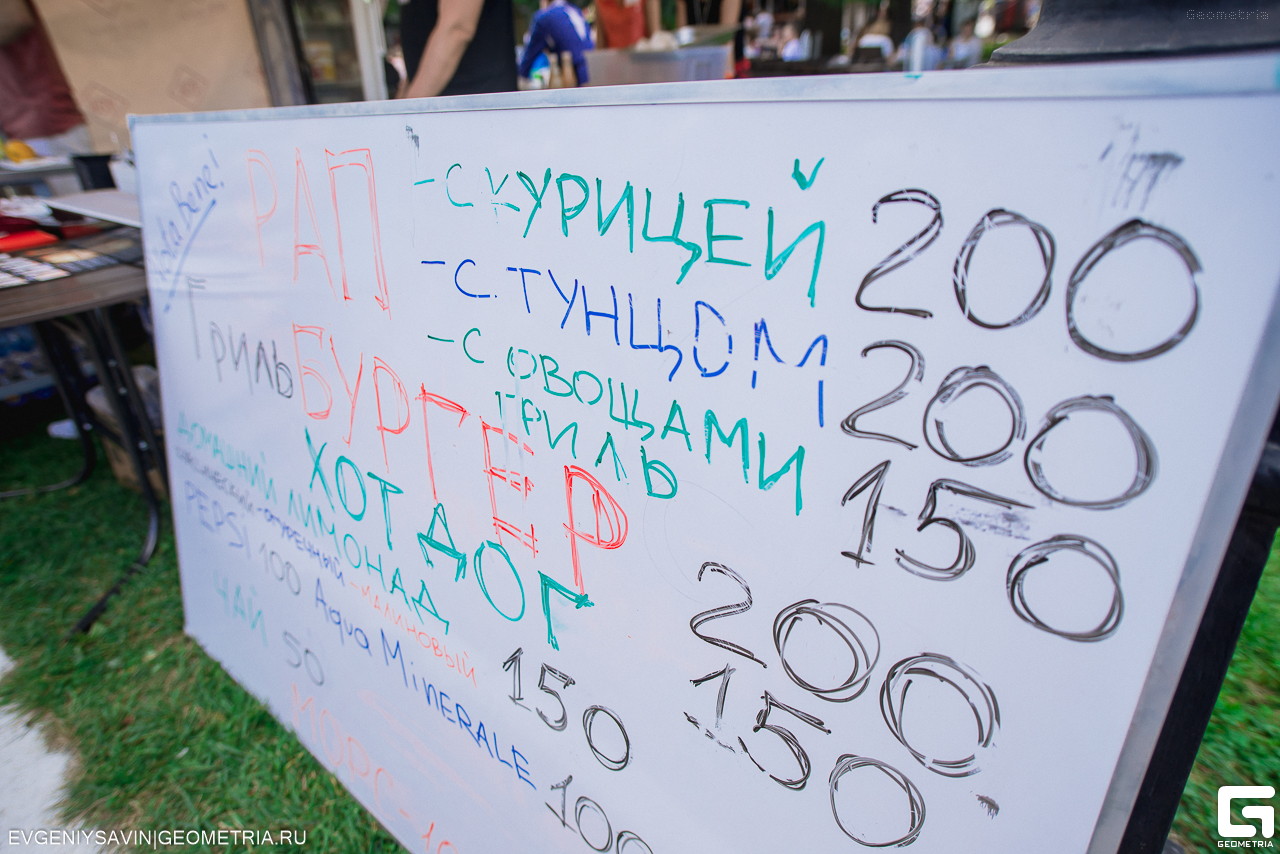 Geometria
Nota Bene!
РАП - С КУРИЦЕЙ 200
- С ТУНЦОМ 200
- С ОВОЩАМИ ГРИЛЬ 150
ГРИЛЬ БУРГЕР 200
ХОТ ДОГ 150
ДОМАШНИЙ ЛИМОНАД 150
КЛАССИЧЕСКИЙ - ОГУРЕЧНЫЙ - МАЛИНОВЫЙ
PEPSI 100 Aqua MINERALE 100
ЧАЙ 50
МОРС - 10
EVGENIYSAVIN|GEOMETRIA.RU
GEOMETRIA